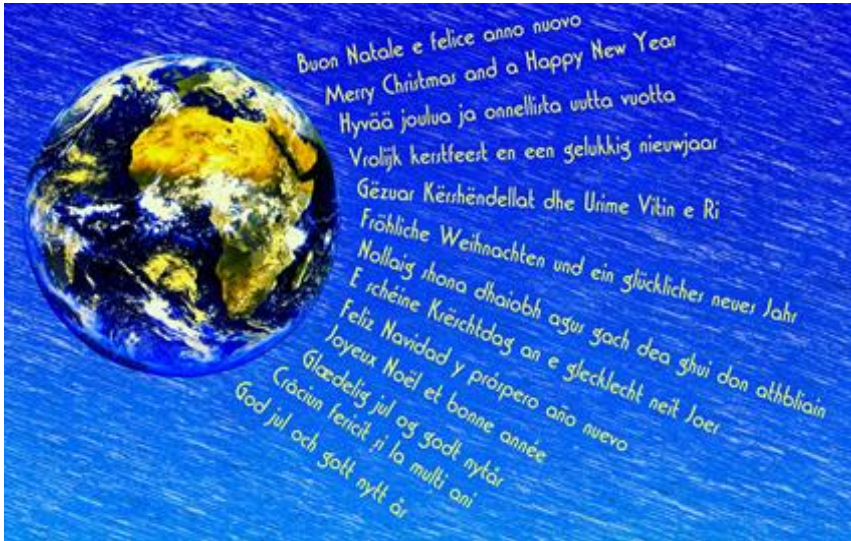 Buon Natale e felice anno nuovo
Merry Christmas and a Happy New Year
Hyvää joulua ja onnellista uutta vuotta
Vrolijk kerstfeest en een gelukkig nieuwjaar
Gëzuar Kërshëndellat dhe Urime Vitin e Ri
Fröhliche Weihnachten und ein glückliches neues Jahr
Nollaig shona dhaiobh agus gach dea ghui don athbliain
E schéine Krëschtdag an e glecklecht neit Joer
Feliz Navidad y próspero año nuevo
Joyeux Noël et bonne année
Glædelig jul og godt nytår
Crăciun fericit şi la multi ani
God jul och gott nytt år